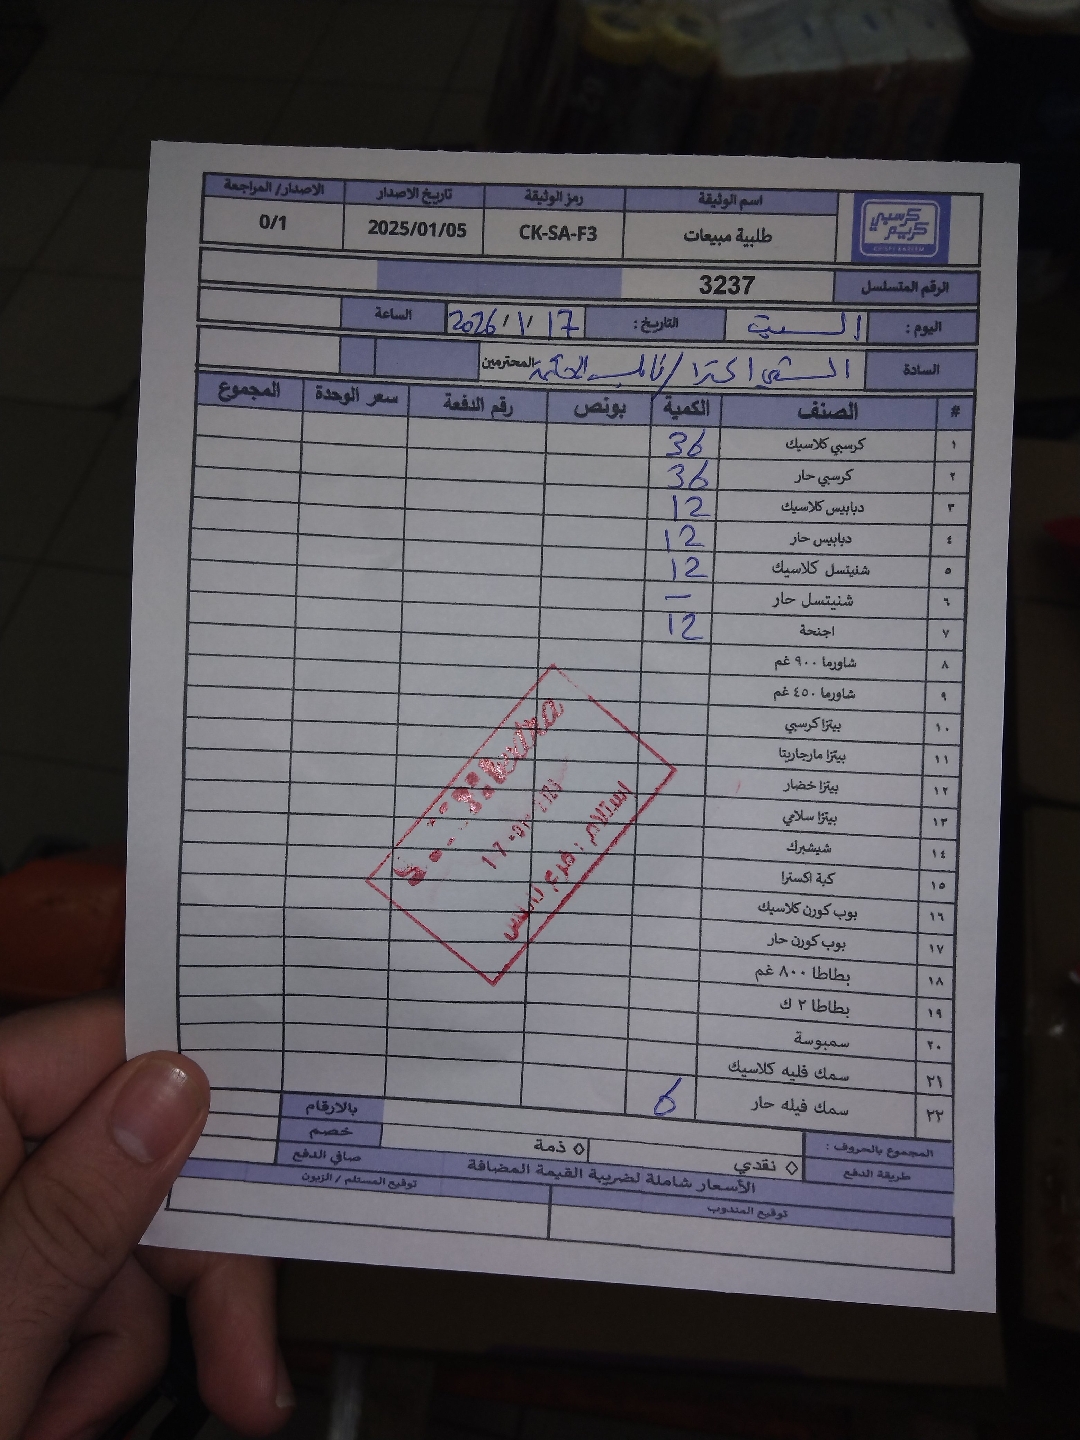 اسم الوثيقة رمز الوثيقة تاريخ الاصدار الاصدار/ المراجعة
كرسبي كريم
طلبية مبيعات CK-SA-F3 2025/01/05 0/1
الرقم المتسلسل 3237
اليوم : السبت التاريخ : 2026/1/17 الساعة
السادة / نابلس المحترمين
# الصنف الكمية بونص رقم الدفعة سعر الوحدة المجموع
١ كرسبي كلاسيك 36
٢ كرسبي حار 36
٣ دبابيس كلاسيك 12
٤ دبابيس حار 12
٥ شنيتسل كلاسيك 12
٦ شنيتسل حار –
٧ اجنحة 12
٨ شاورما ٩٠٠ غم
٩ شاورما ٤٥٠ غم
١٠ بيتزا كرسبي
١١ بيتزا مارجاريتا
١٢ بيتزا خضار
١٣ بيتزا سلامي
١٤ شيشبرك
١٥ كبة اكسترا
١٦ بوب كورن كلاسيك
١٧ بوب كورن حار
١٨ بطاطا ٨٠٠ غم
١٩ بطاطا ٢ ك
٢٠ سمبوسة
٢١ سمك فليه كلاسيك
٢٢ سمك فيله حار 6
استلام : فرع نابلس
المجموع بالحروف : بالارقام
خصم
طريقة الدفع ◊ نقدي ◊ ذمة صافي الدفع
الأسعار شاملة لضريبة القيمة المضافة
توقيع المندوب توقيع المستلم / الزبون